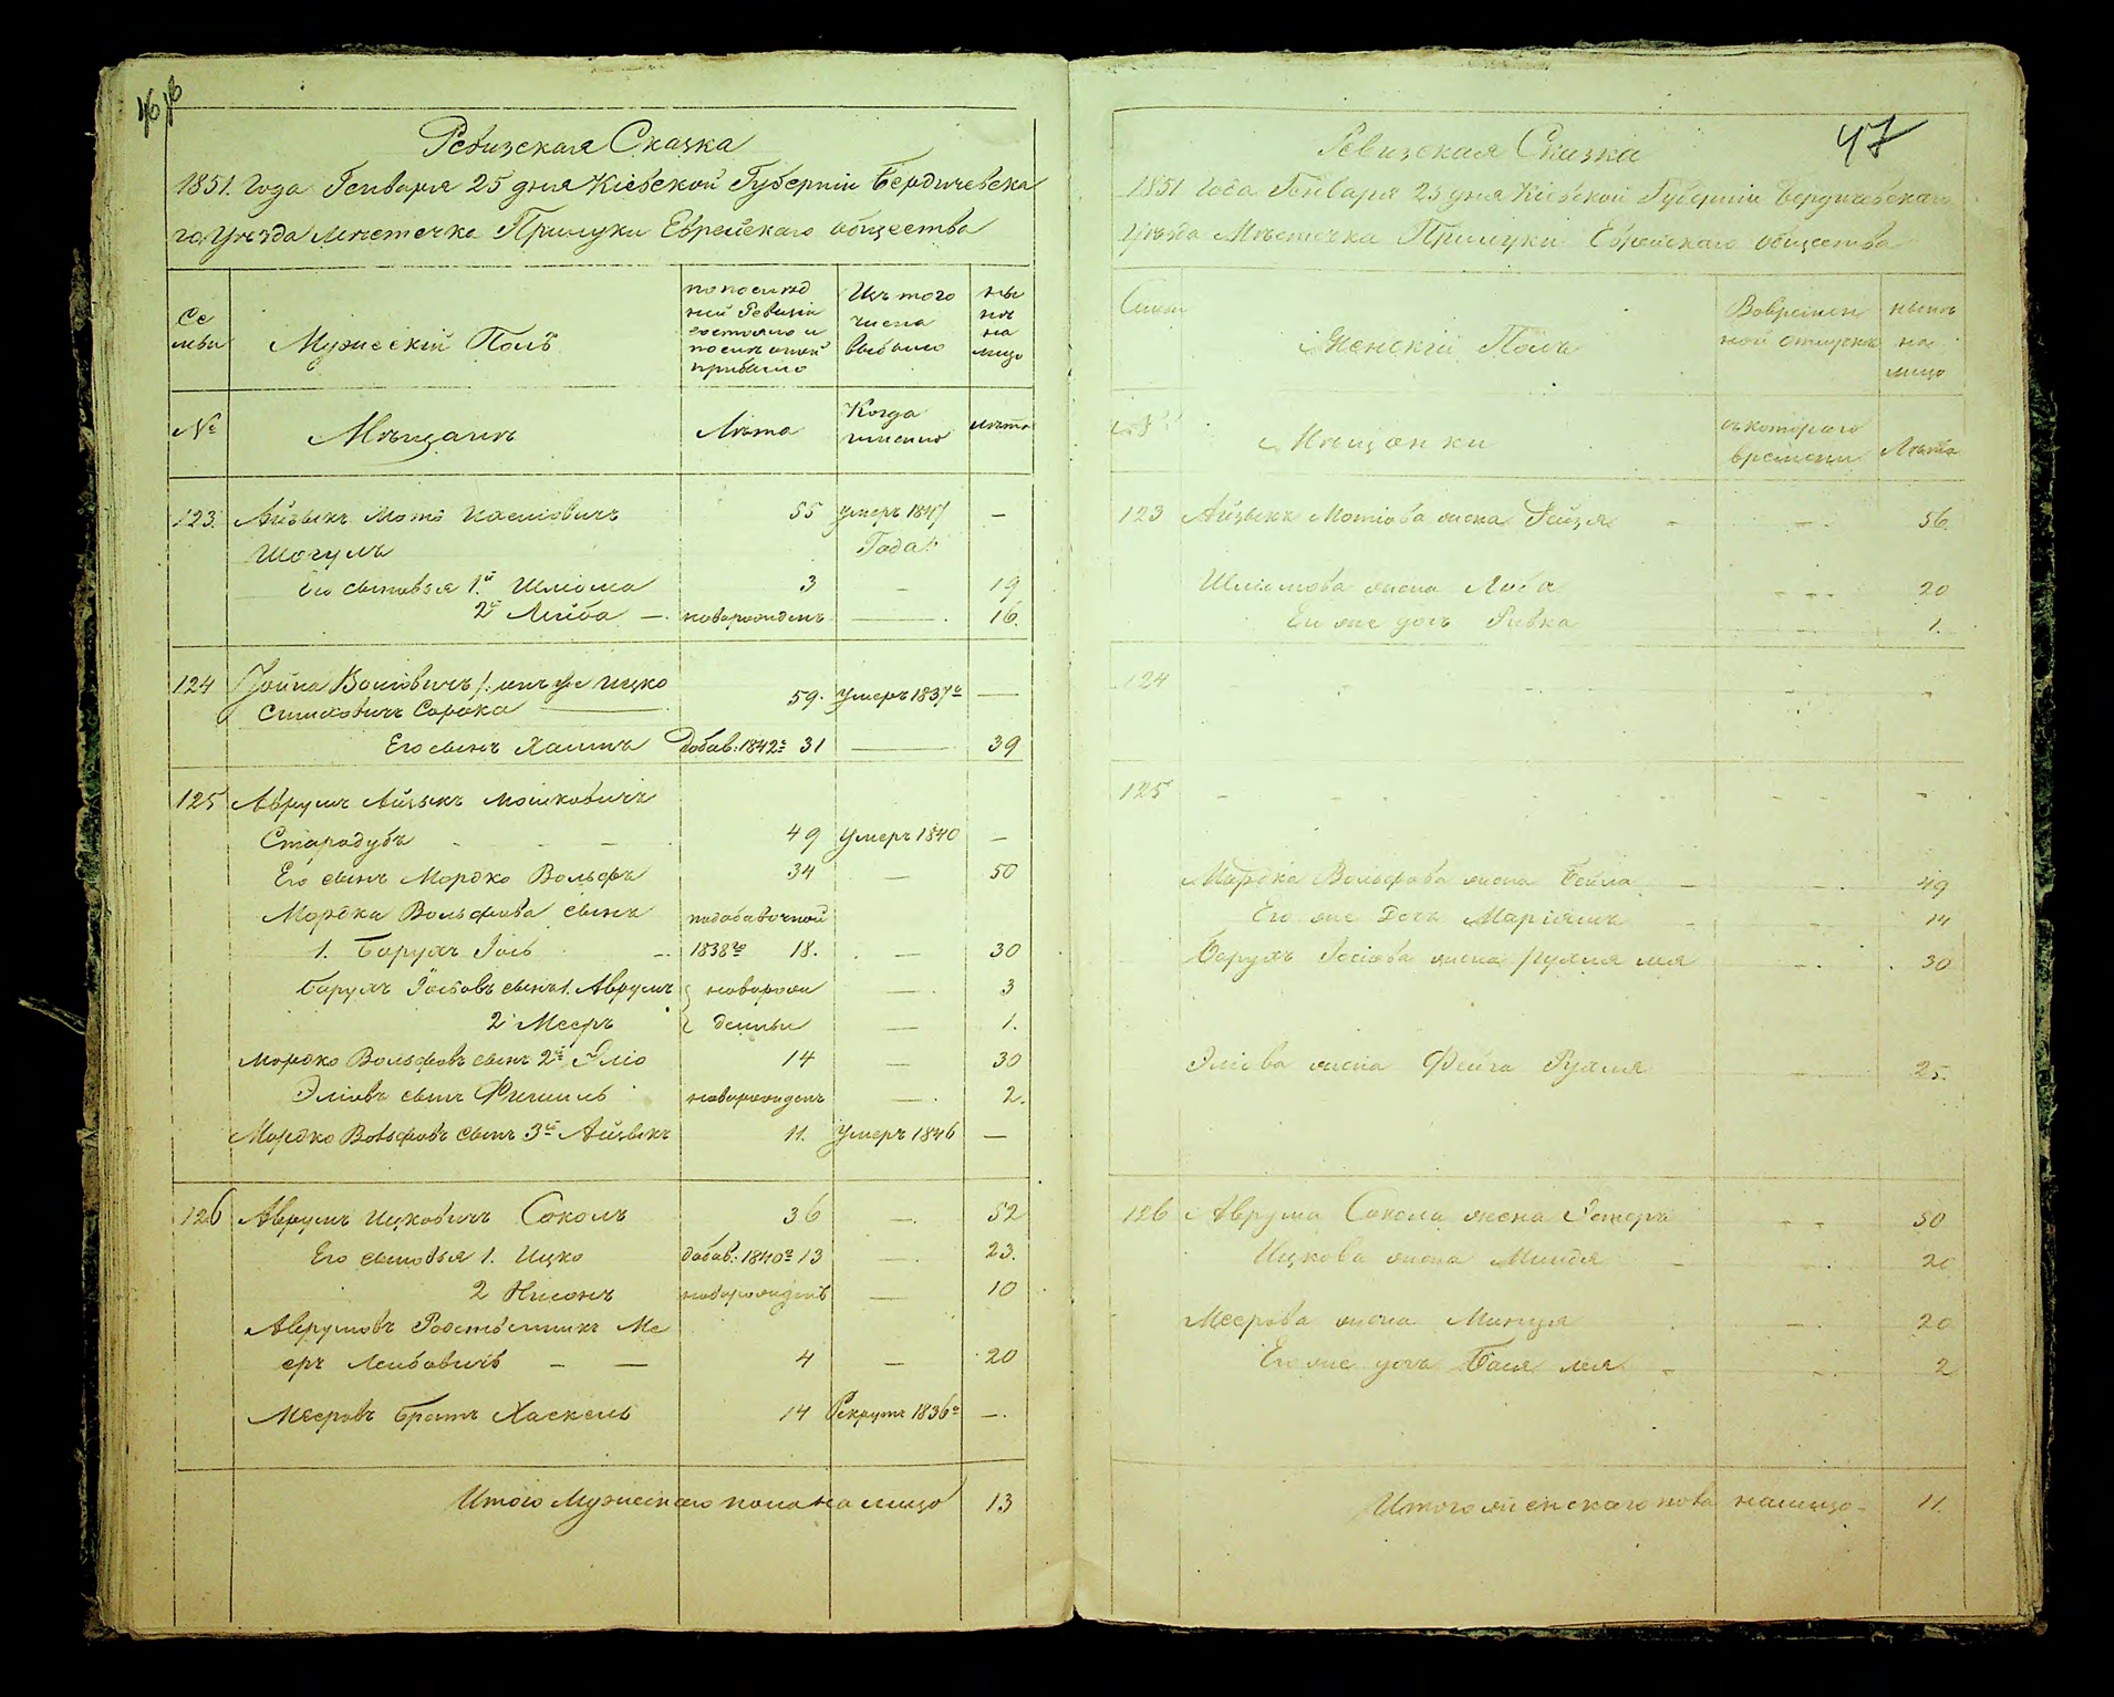 46
Ревизская Сказка
1851. Года Генваря 25 дня Кіевской Губерніи Бердичевска
го Уѣзда Мѣстечка Прилуки Еврейскаго общества
Се
мьи
Мужескій Полъ
по послѣд
ней Ревизіи
состояло и
послѣ оной
прибыло
Изъ того
числа
выбыло
ны
нѣ
на
лицо
№
Мѣщанъ
Лѣта
Когда
именно
Лѣта
123. Айзыкъ Мотѣ Іосіовичъ 55 умеръ 1847 —
Шогулъ Года
Его сыновья 1й Шліома 3 — 19
2й Лейба — новорожденъ — 16.
124 Іойна Волковичъ онъ же Ицко
Симховичъ Сорока 59. умеръ 1837го —
Его сынъ Хаимъ Добав: 1842го 31 — 39
125 Аврумъ Айзыкъ Мошковичъ
Стародубъ - - - 49 умеръ 1840 —
Его сынъ Мордко Вольфъ 34 — 50
Мордка Вольфова сынъ по добавочной
1. Борухъ Іось — 1838го 18. — 30
Борухъ Іосіовъ сынъ 1. Аврумъ новорож — 3
2 Мееръ денны — 1.
Мордко Вольфовъ сынъ 2й Эліо 14 — 30
Эліовъ сынъ Фишель новорожденъ — 2.
Мордко Вольфовъ сынъ 3й Айзыкъ 11. умеръ 1846 —
126 Аврумъ Ицковичъ Соколъ 36 — 52
Его сыновья 1. Ицко добав: 1840го 13 — 23.
2 Нисонъ новорожденъ — 10
Аврумовъ Родственникъ Ме
еръ Лейбовичъ — — 4 — 20
Мееровъ братъ Хаскель 14 Рекрутъ 1836го —.
Итого Мужескаго пола на лицо 13
47
Ревизская Сказка
1851 Года Генваря 25 дня Кіевской Губерніи Бердичевскаго
Уѣзда Мѣстечка Прилуки Еврейскаго общества
Семьи
Женскій Полъ
Вовремен
ной отлучкѣ
нынѣ
на
лицо
№
Мѣщанки
съ котораго
времени
Лѣта
123 Айзыка Мотіова жена Рейзя - - 56.
Шліомова жена Люба - - - 20
Его же дочь Ривка 1.
124 - - - - -
125 - - - - -
Мордка Вольфова жена Бейла — - 49
Его же Дочь Маріямъ - - 14
Борухъ Іосіова жена Рухля Лея — 30
Эліова жена Фейга Рухля — 25.
126 Аврума Сокола жена Эстеръ - - 50
Ицкова жена Миндя - - 20
Меерова жена Минця — 20
Его же дочь Бася Лея - - 2
Итого женскаго пола налицо - 11.